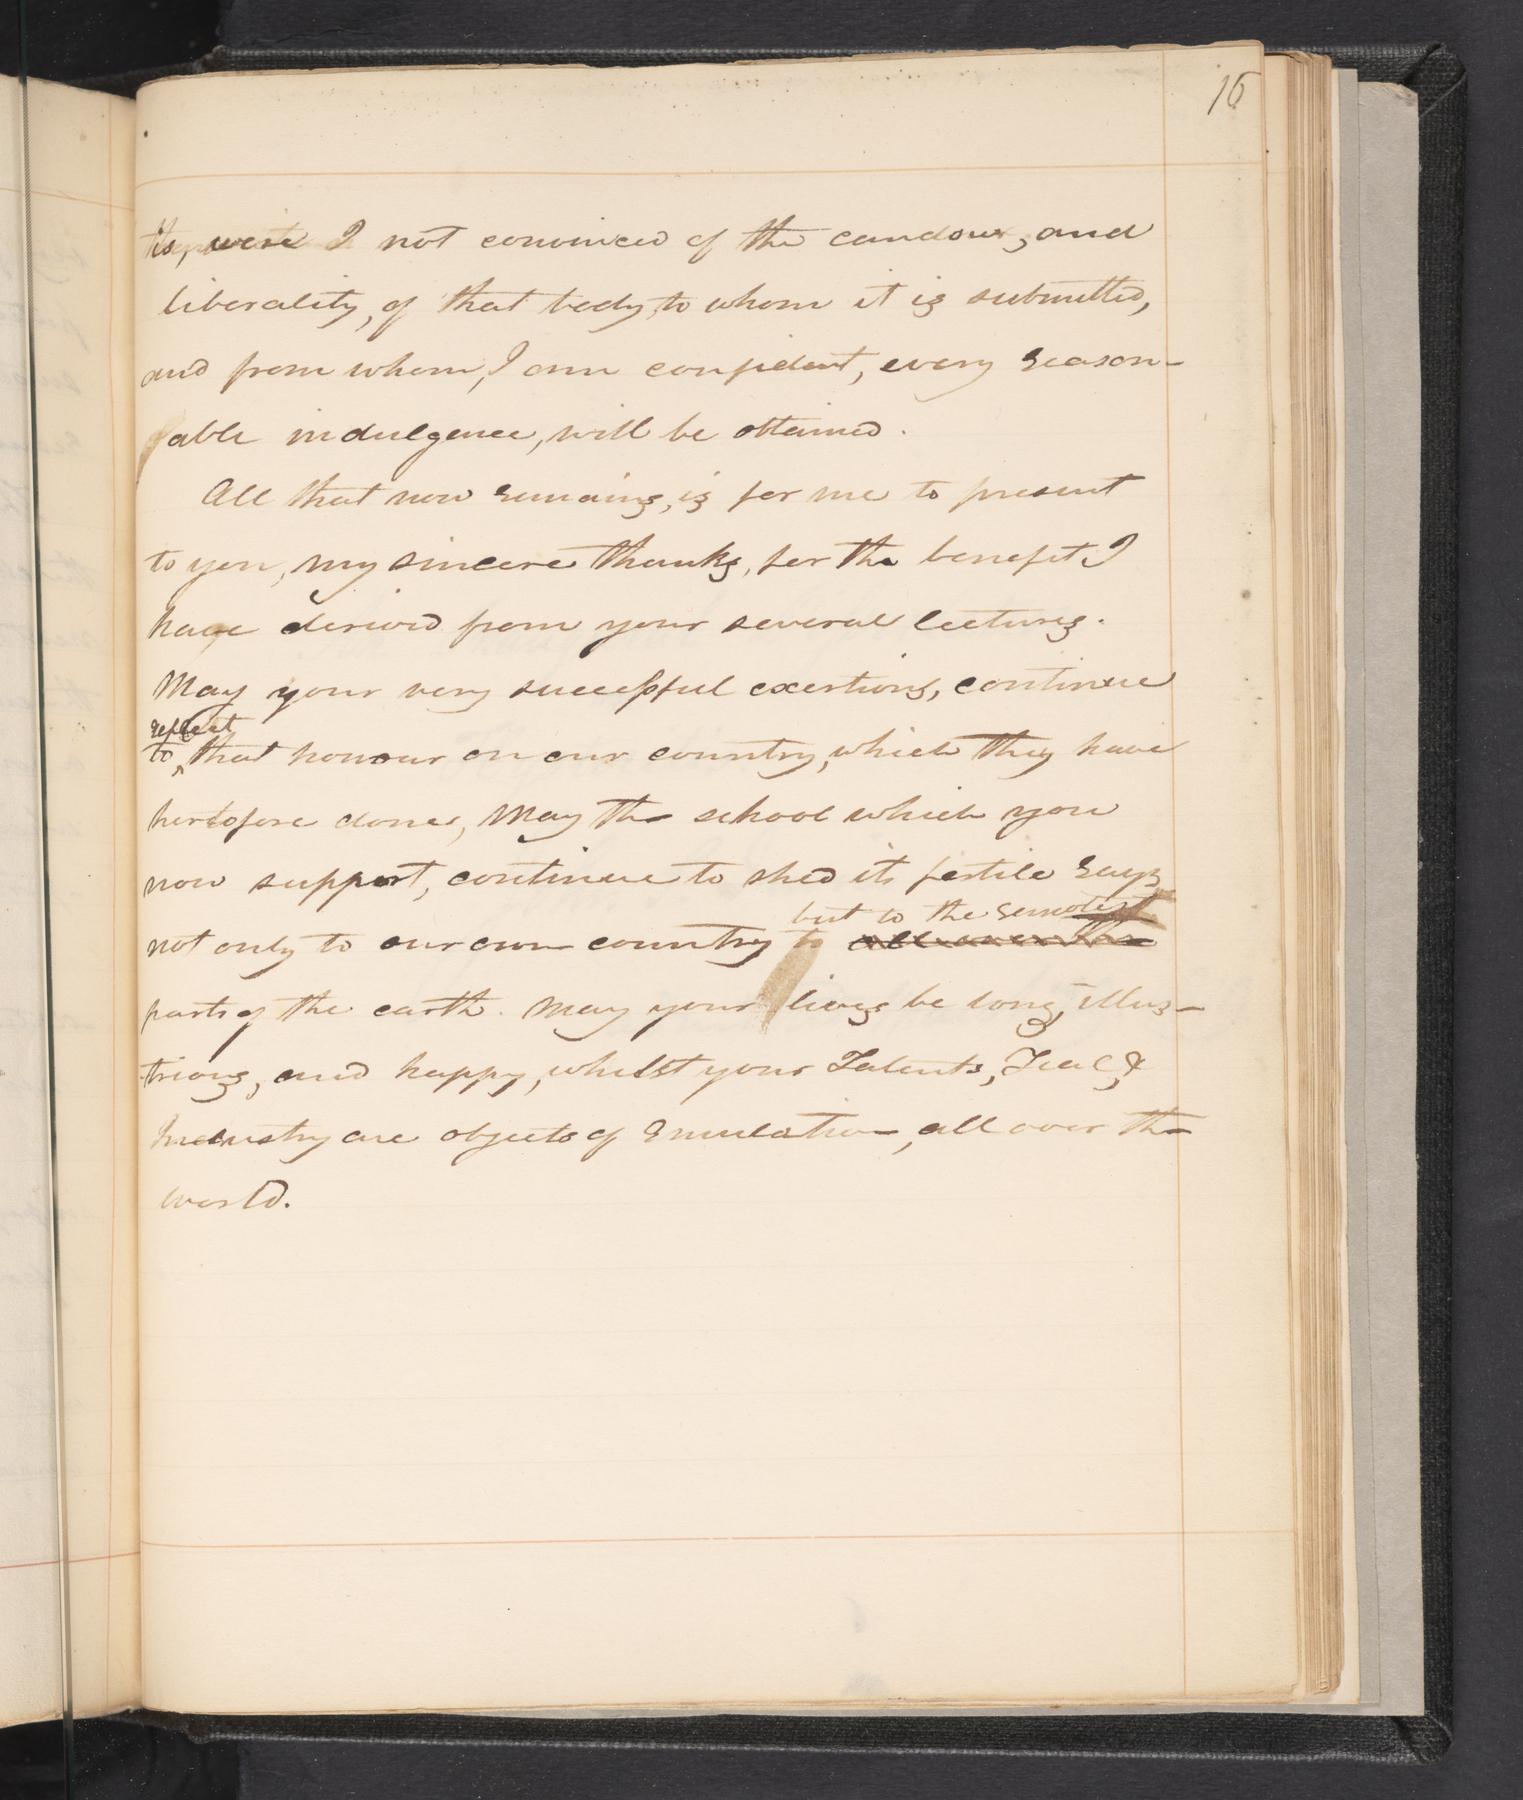 16
its, were I not convinced of the candour, and
liberality, of that body, to whom it is submitted,
and from whom, I am confident, every reason-
able indulgence, will be obtained.
All that now remains, is for me to present
to you, my sincere thanks, for the benefit I
have derived from your several lectures.
May your very successful exertions, continue
reflect
to, that honour on our country, which they have
hertofore done, May the school which you
now support, continue to shed its fertile rays
but to the remotest
not only to our own country to all over the
parts of the earth. May your lives be long, illus-
trious, and happy, whilst your Talents, Zeal, &
Industry are objects of Emulation, all over the
world.